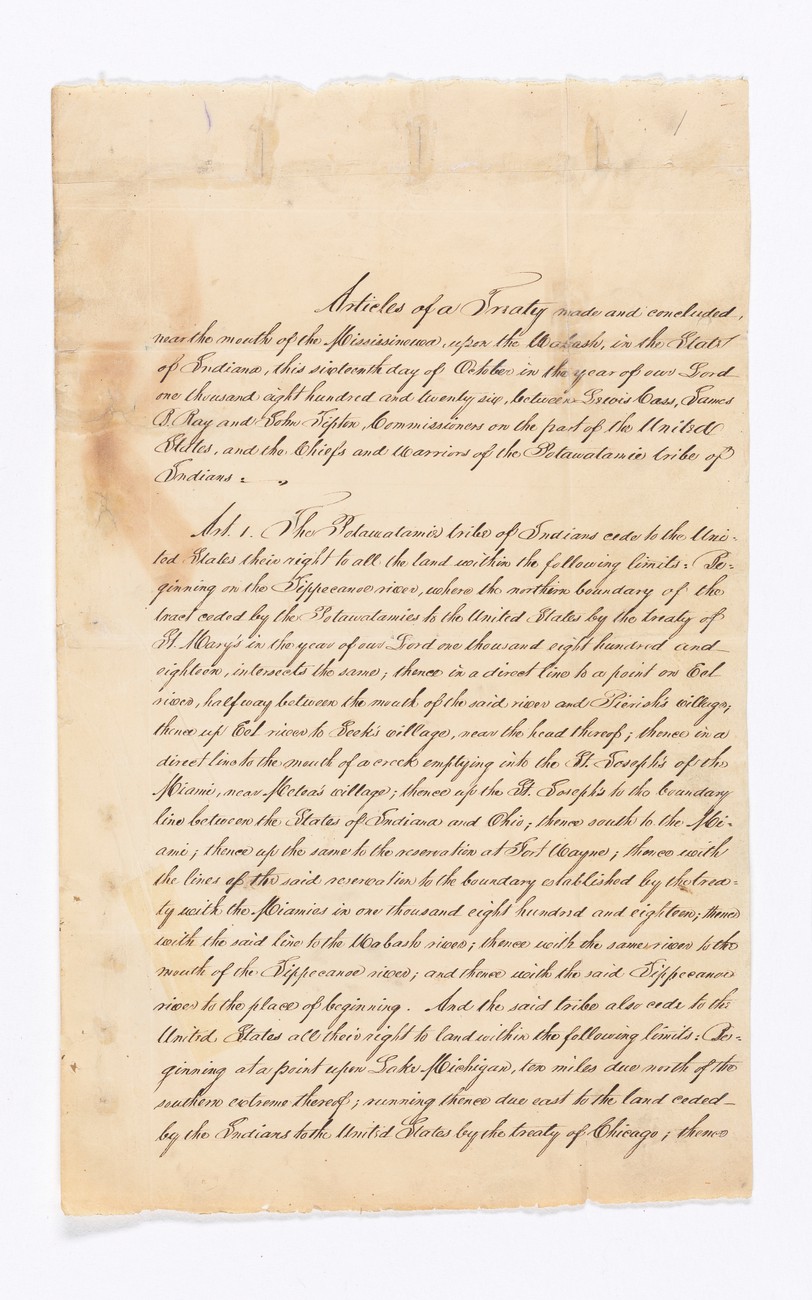 Articles of a Treaty made and concluded,
near the mouth of the Mississinewa, upon the Wabash, in the State
of Indiana, this sixteenth day of October in the year of our Lord
one thousand eight hundred and twenty six, between Lewis Cass, James
B. Ray and John Tipton, Commissioners on the part of the United
States, and the Chiefs and Warriors of the Potawatamie tribe of
Indians =
Art. 1. The Potawatamie tribe of Indians cede to the Uni-
ted States their right to all the land within the following limits: Be=
ginning on the Tippecanoe river, where the northern boundary of the
tract ceded by the Potawatamies to the United States by the treaty of
St. Mary's in the year of our Lord one thousand eight hundred and
eighteen, intersects the same; thence in a direct line to a point on Eel
river, half way between the mouth of the said river and Pierish's village;
thence up Eel river to Seek's village, near the head thereof; thence in a
direct line to the mouth of a creek emptying into the St. Joseph's of the
Miami, near Metea's village; thence up the St. Joseph's to the boundary
line between the States of Indiana and Ohio; thence south to the Mi-
ami; thence up the same to the reservation at Fort Wayne; thence with
the lines of the said reservation to the boundary established by the trea=
ty with the Miamies in one thousand eight hundred and eighteen; thence
with the said line to the Wabash river; thence with the same river to the
mouth of the Tippecanoe river; and thence with the said Tippecanoe
river to the place of beginning. And the said tribe also cede to the
United States all their right to land within the following limits: Be=
ginning at a point upon Lake Michigan, ten miles due north of the
southern extreme thereof; running thence due east to the land ceded
by the Indians to the United States by the treaty of Chicago; thence